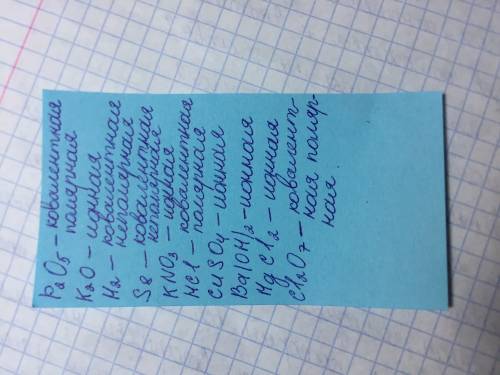 P₂O₅ – ковалентная
полярная
K₂O – ионная
H₂ – ковалентная
неполярная
S8 – ковалентная
неполярная
KNO₃ – ионная
HCl – ковалентная
полярная
CuSO₄ – ионная
Ba(OH)₂ – ионная
MgCl₂ – ионная
Cl₂O₇ – ковалент-
ная поляр-
ная